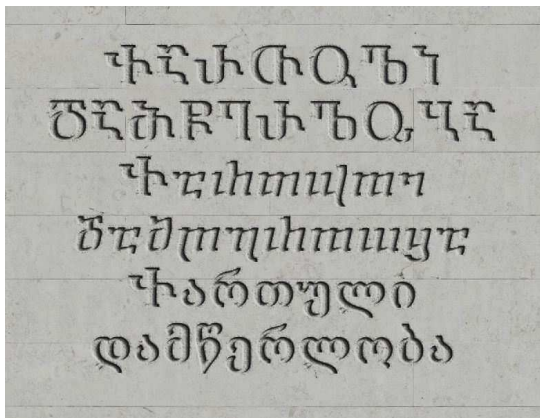 ႵႠႰႧႳႪႨ
ႣႠႫႼႤႰႪႭႡႠ
Ⴕⴀⴐⴇⴓⴊⴈ
Ⴃⴀⴋⴼⴄⴐⴊⴍⴁⴀ
Ⴕართული
დამწერლობა